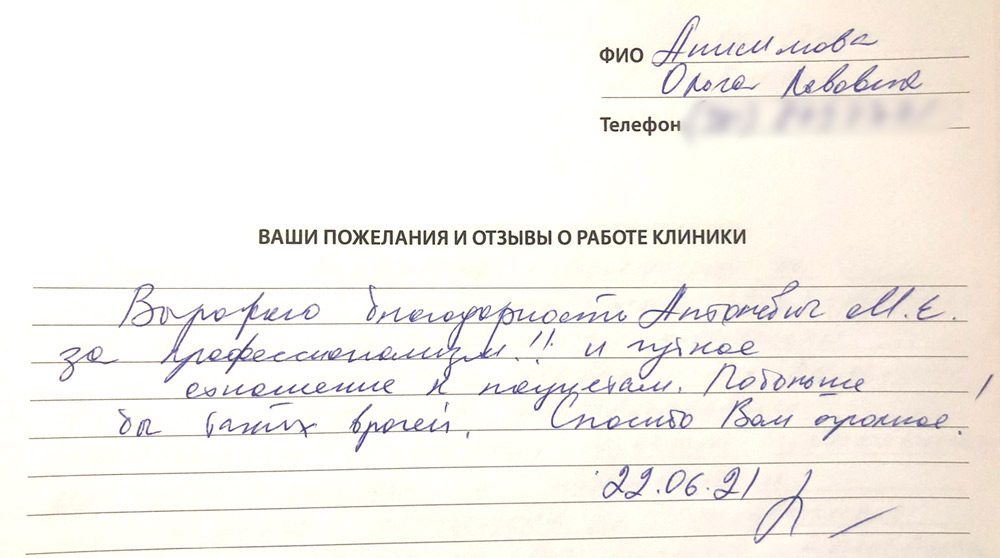 ФИО Анисимова
Ольга Львовна
Телефон
ВАШИ ПОЖЕЛАНИЯ И ОТЗЫВЫ О РАБОТЕ КЛИНИКИ
Выражаю благодарность Антоневич М.Е.
за профессионализм!! и чуткое
отношение к пациентам. Побольше
бы таких врачей. Спасибо Вам огромное!
22.06.21